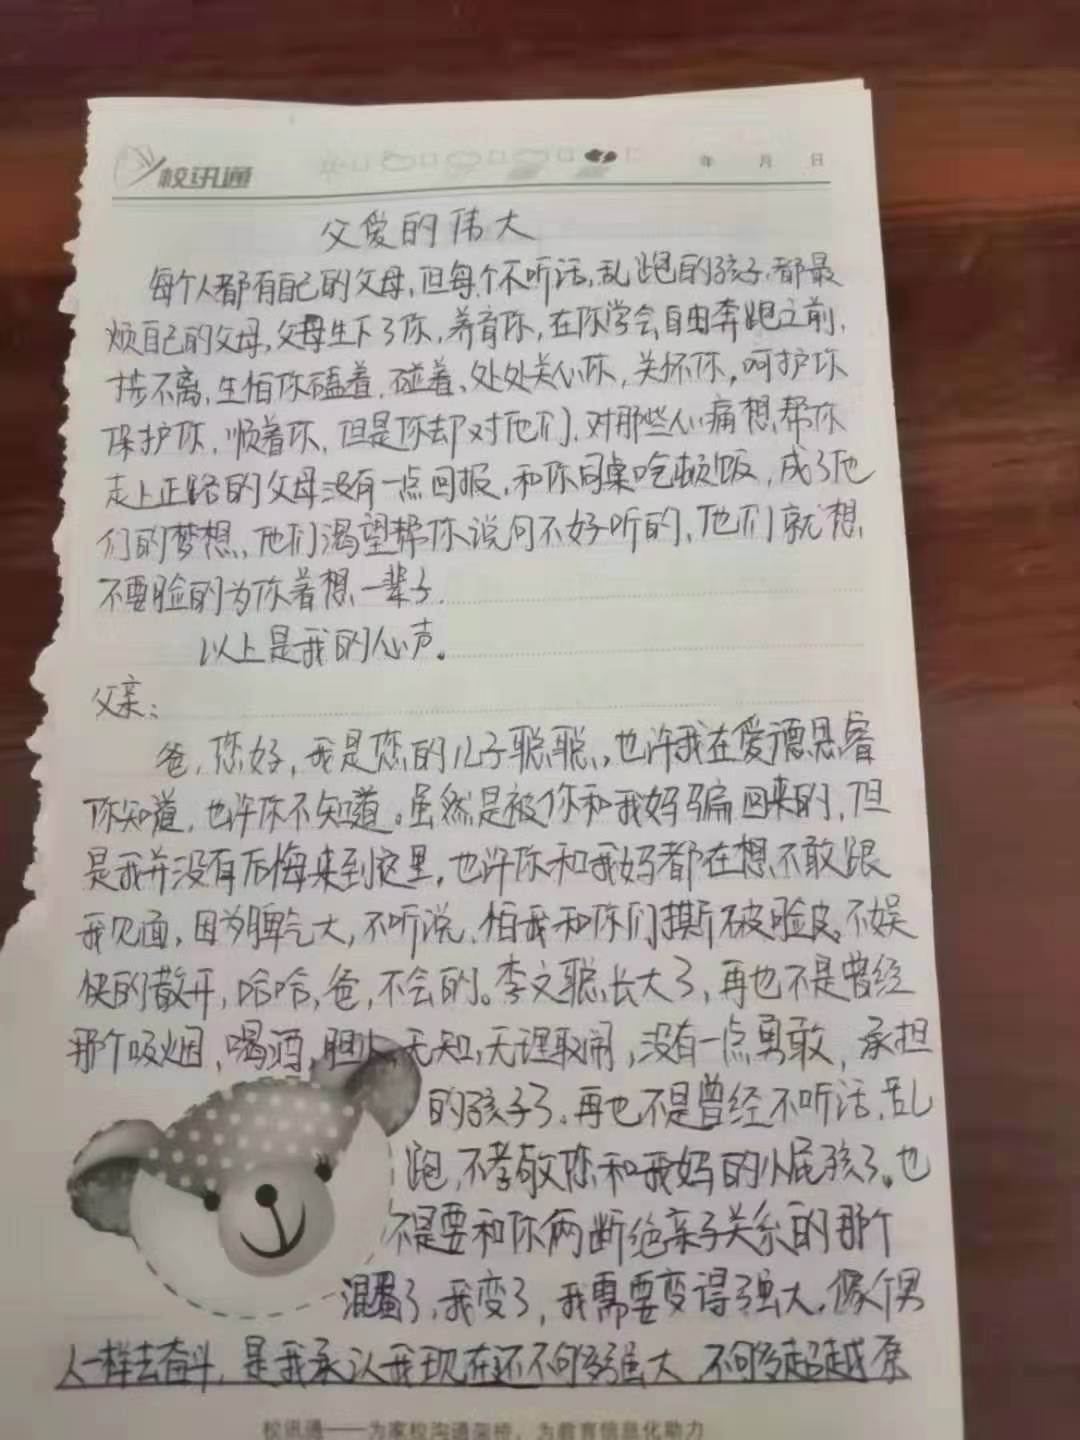 校讯通
年 月 日
父爱的伟大
每个人都有自己的父母,但每个不听话,乱跑的孩子,都最
烦自己的父母,父母生下了你,养育你,在你学会自由奔跑之前,
步不离,生怕你磕着,碰着、处处关心你,关怀你,呵护你
保护你,顺着你,但是你却对他们,对那些心痛想帮你
走上正路的父母没有一点回报,和你同桌吃顿饭,成了他
们的梦想,他们渴望帮你说句不好听的,他们就想
不要脸的为你着想一辈子.
以上是我的心声。
父亲:
爸,您好,我是您的儿子聪聪,也许我在爱德思睿
你知道,也许你不知道。虽然是被你和我妈骗回来的,但
是我并没有后悔来到这里,也许你和我妈都在想不敢跟
我见面,因为脾气大,不听说,怕我和你们撕破脸皮,不娱
快的散开,哈哈,爸,不会的。李文聪长大了,再也不是曾经
那个吸烟,喝酒,胆小,无知,无理取闹,没有一点勇敢,承担
的孩子了。再也不是曾经不听话,乱
跑,不孝敬你和我妈的小屁孩了。也
不是要和你俩断绝亲子关系的那个
混蛋了,我变了,我需要变得强大,像个男
人一样去奋斗,是我承认我现在还不够强大,不够超越原
校讯通——为家校沟通架桥,为教育信息化助力